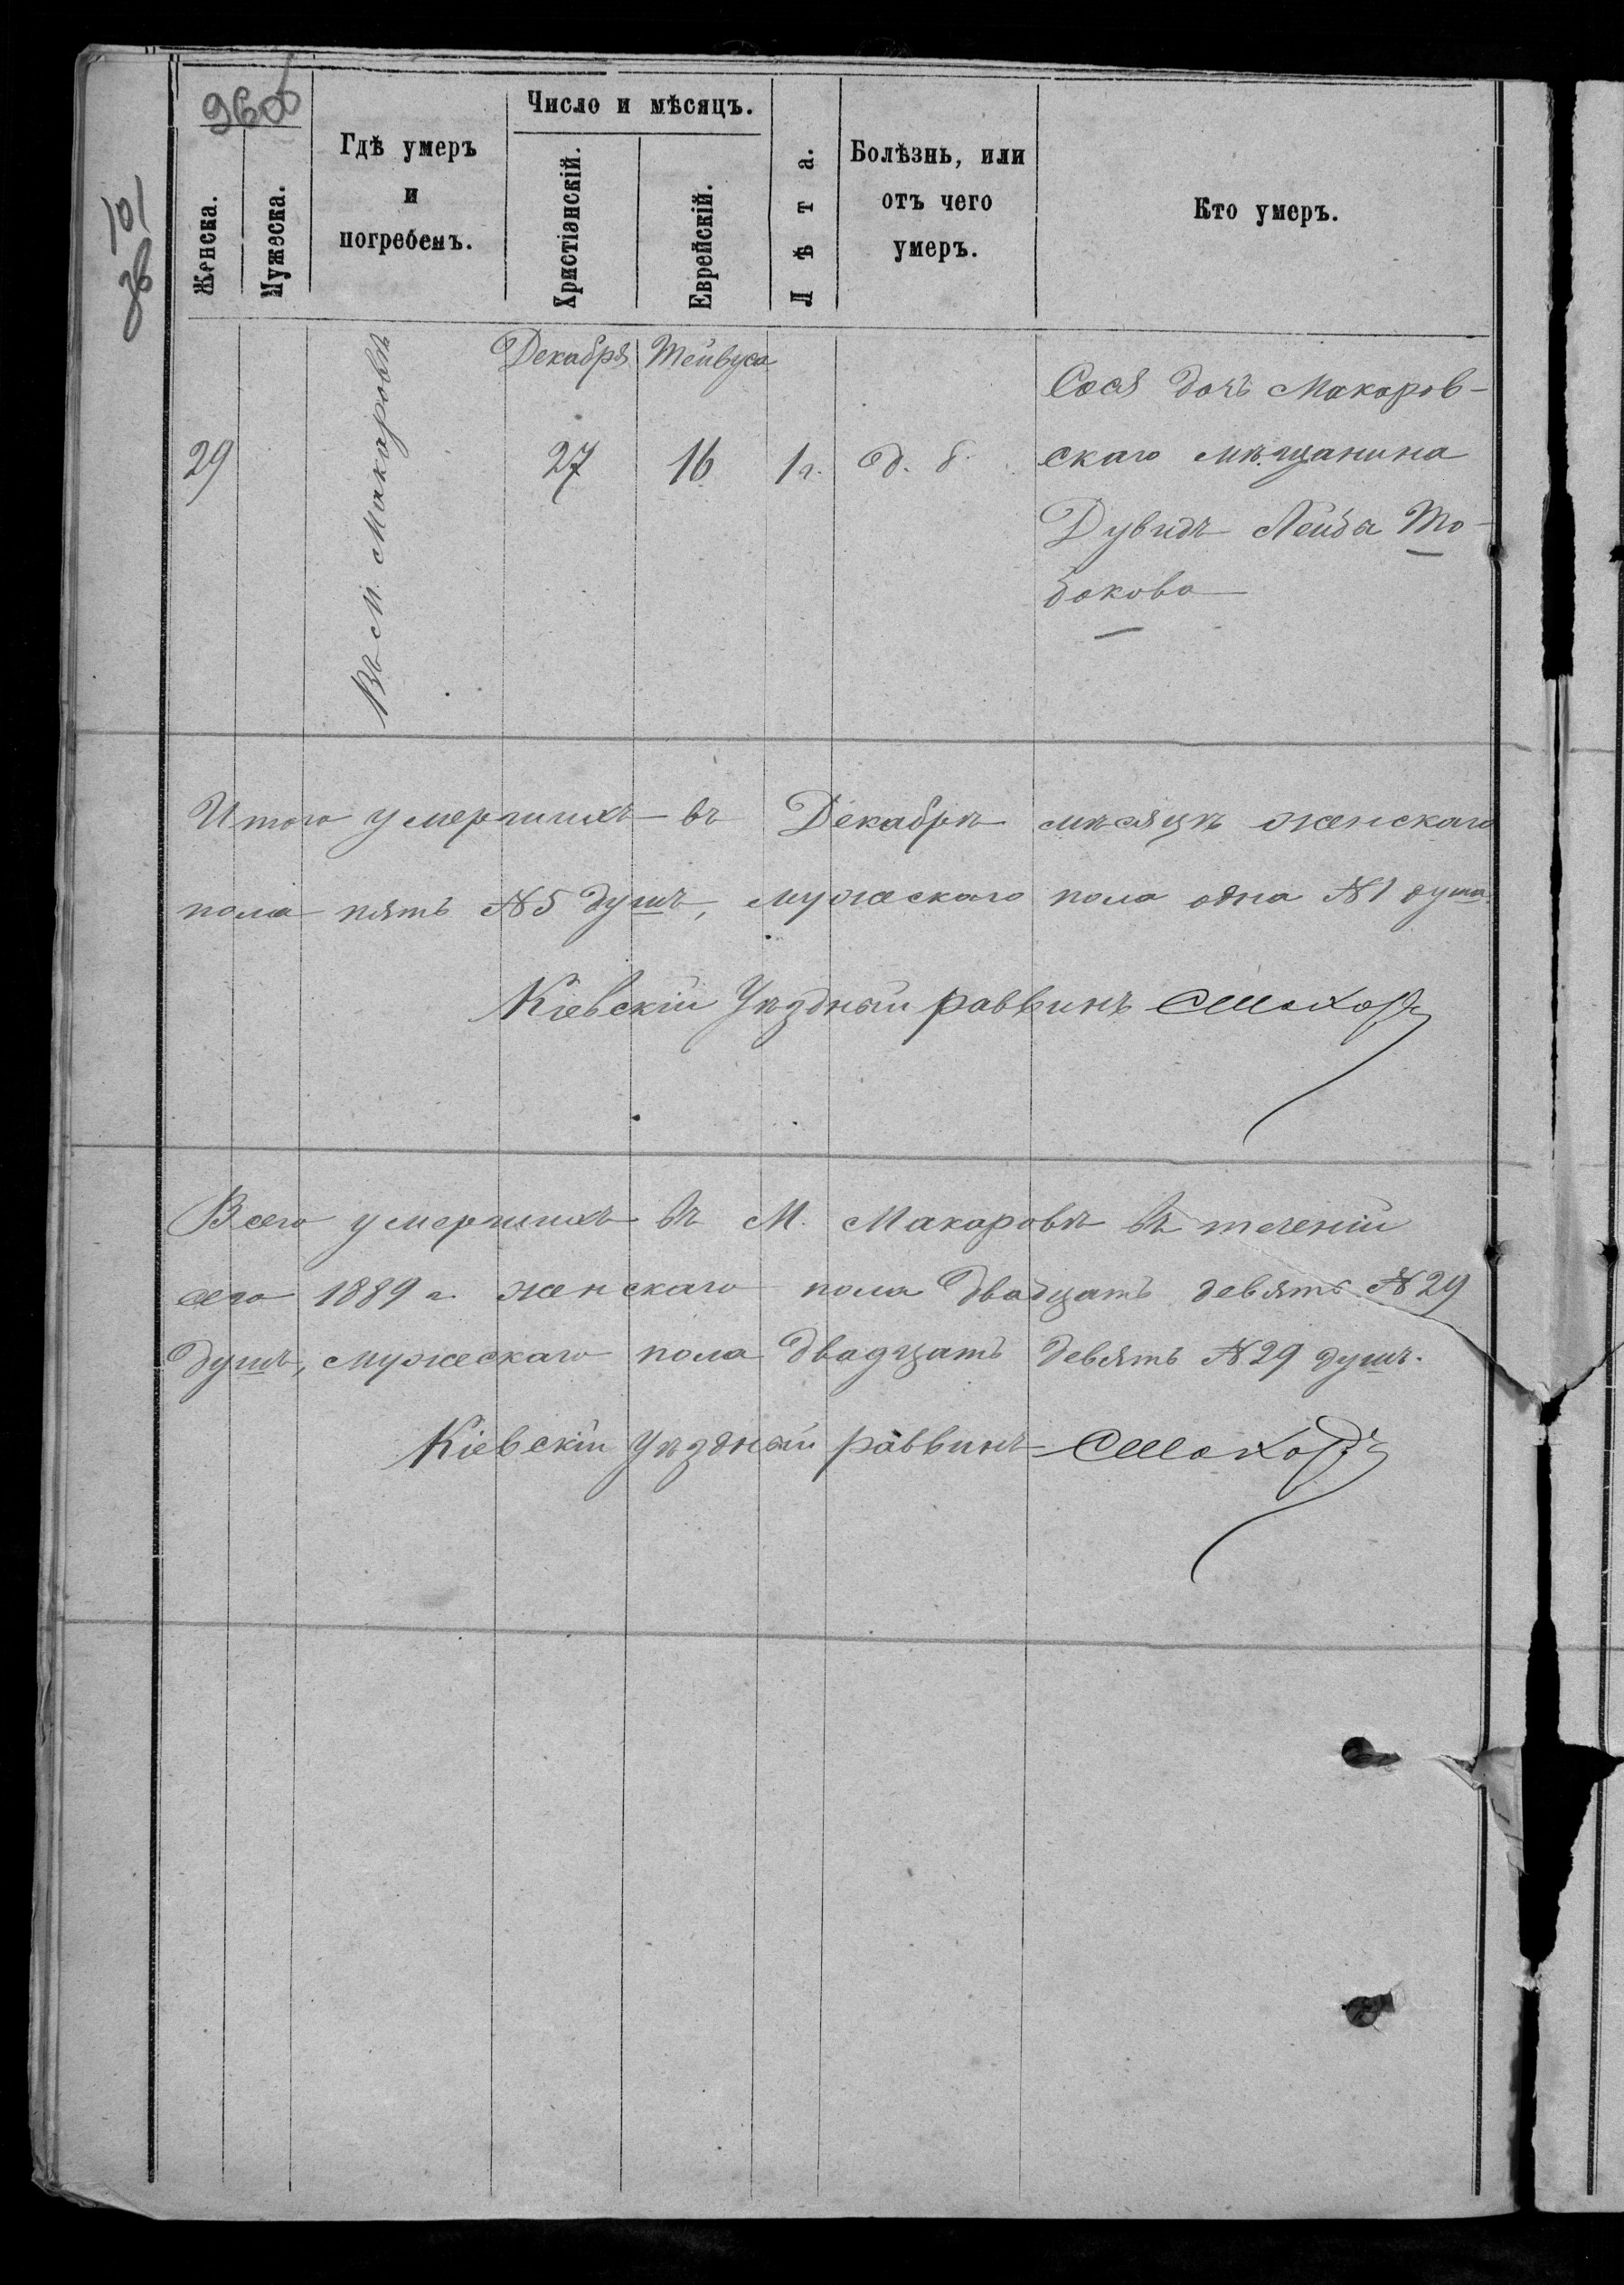 101
38
Женска.
Мужеска.
Гдѣ умеръ
и
погребенъ.
Число и мѣсяцъ.
Христіанскій.
Еврейскій.
Лѣта.
Болѣзнь, или
отъ чего
умеръ.
Кто умеръ.
Декабря Тейвуса
29
Въ М. Макаровѣ
27
16
1 г.
Сося дочь Макаров-
скаго мѣщанина
Дувидъ Лейба То-
бокова
Итого умершихъ въ Декабрѣ мѣсяцѣ женскаго
пола пять № 5 душъ, мужескаго пола одна № 1 душа.
Кіевскій Уѣздный раввинъ
Всего умершихъ въ М. Макаровѣ въ теченіи
сего 1889 г. женскаго пола двадцать девять № 29
душъ, мужескаго пола двадцать девять № 29 душъ.
Кіевскій Уѣздный раввинъ